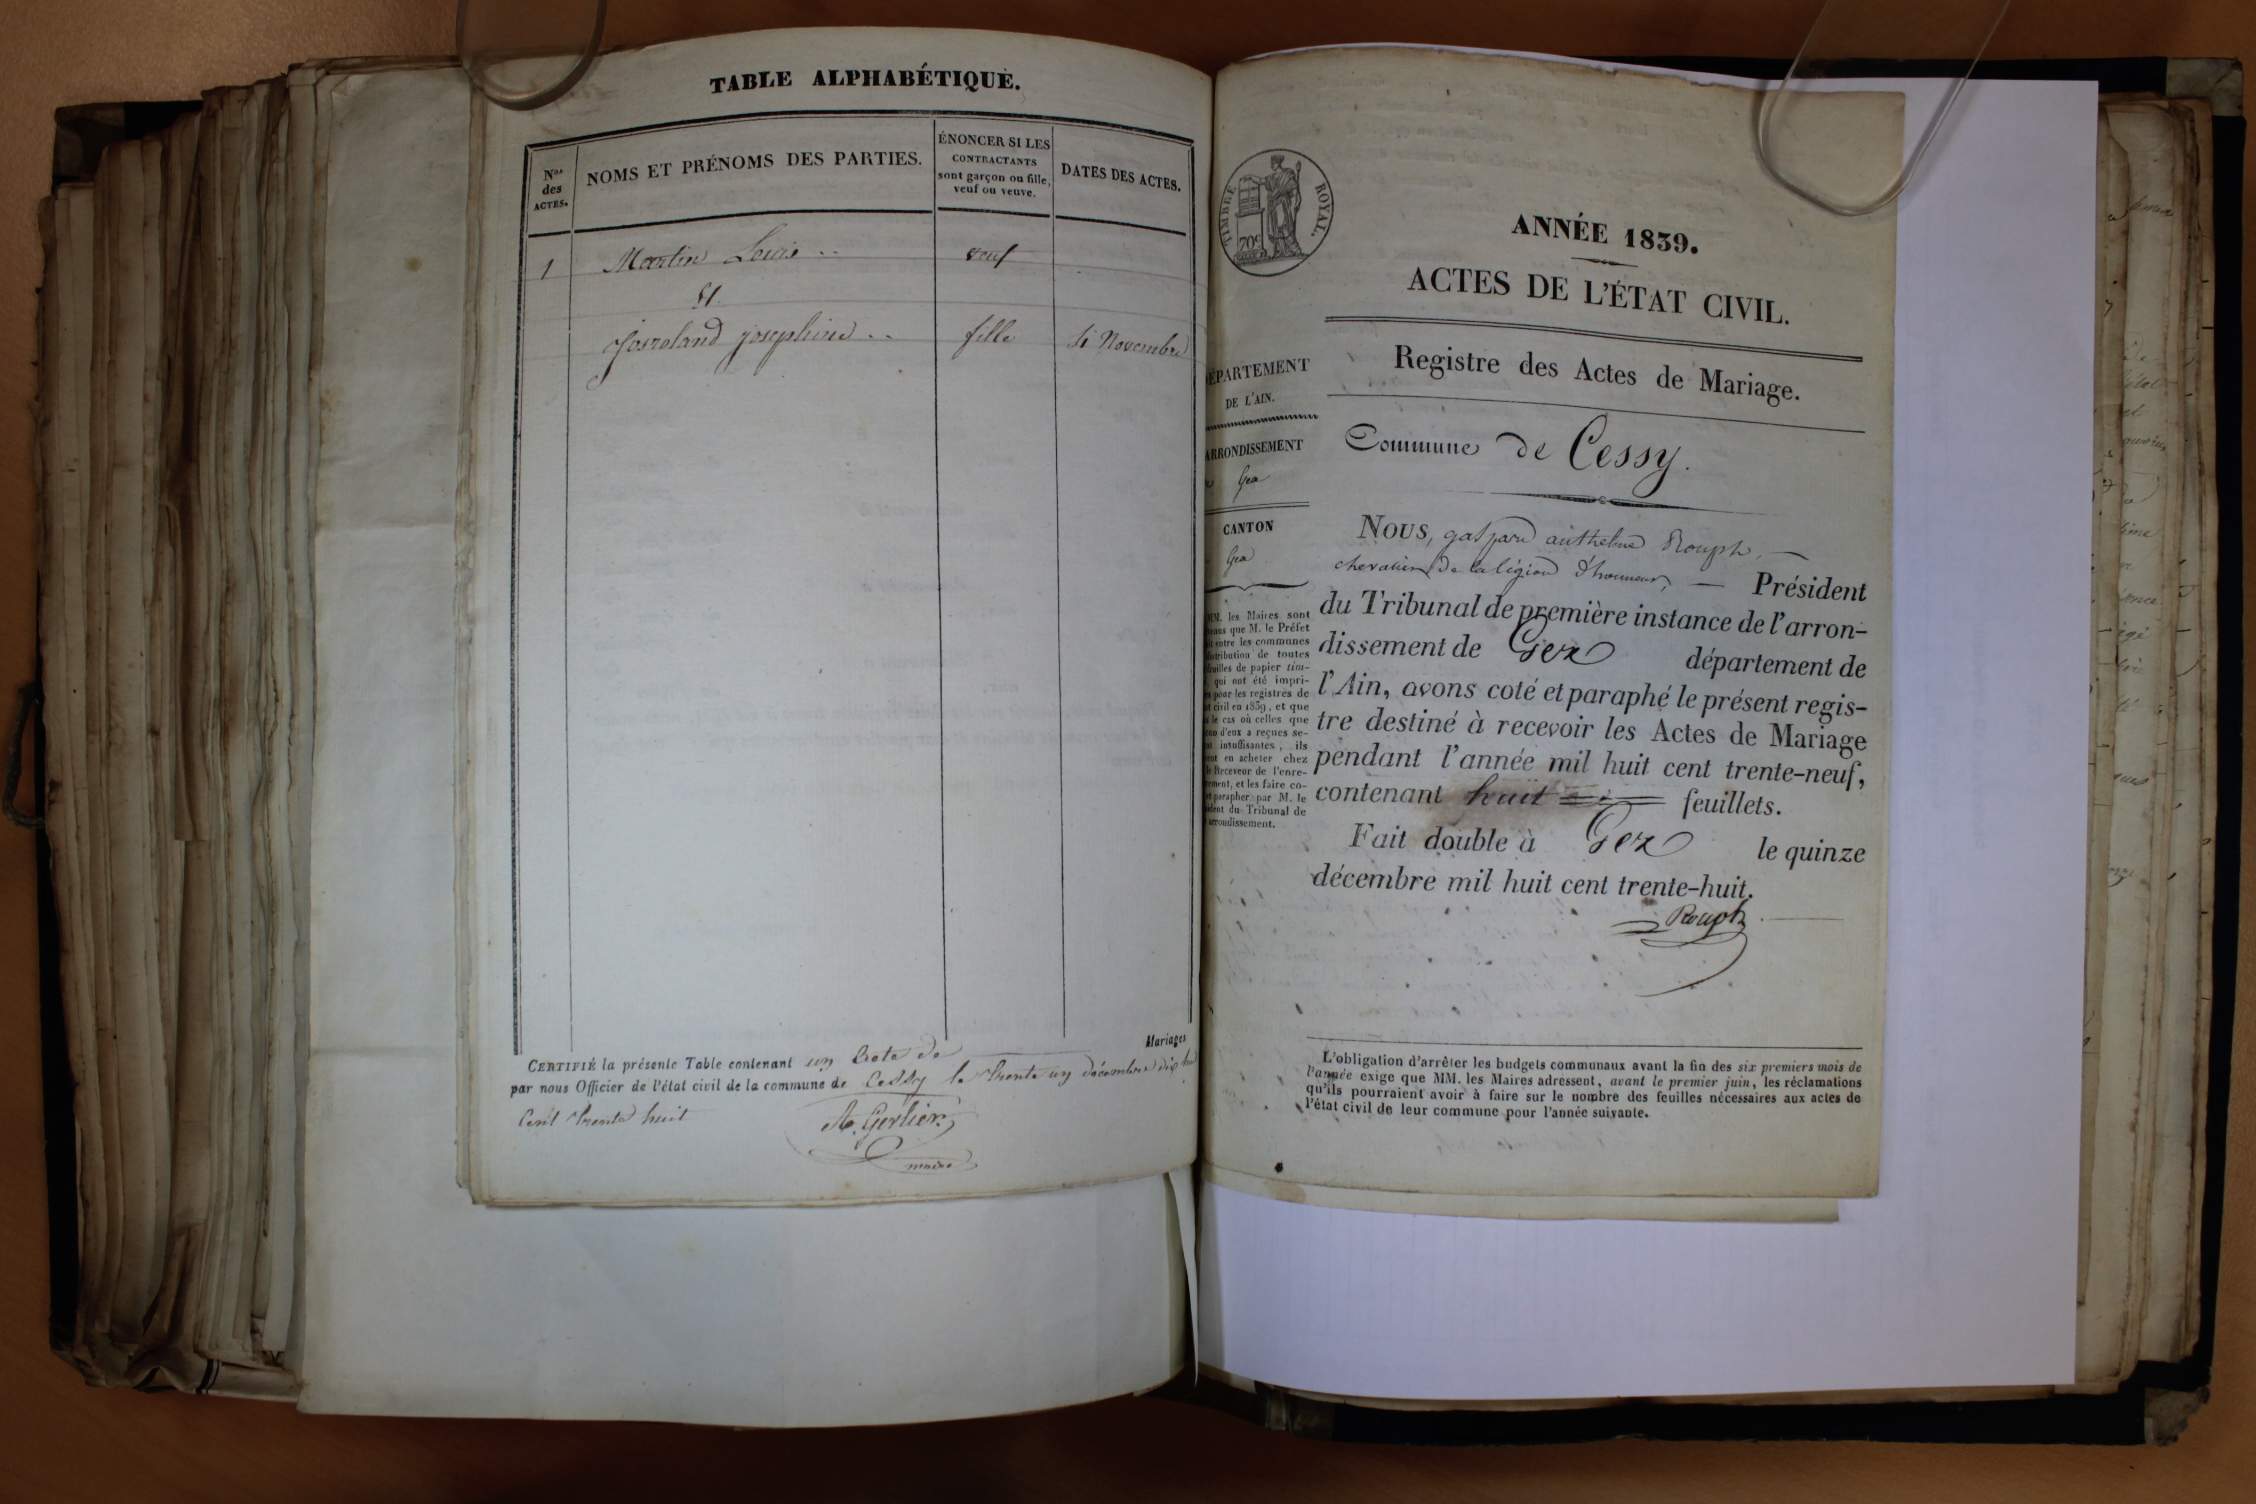 TABLE ALPHABÉTIQUE.
Nos des ACTES.
NOMS ET PRÉNOMS DES PARTIES.
ÉNONCER SI LES
CONTRACTANTS
sont garçon ou fille,
veuf ou veuve.
DATES DES ACTES.
1 Martin Louis .. veuf
et
josephine .. fille Novembre
CERTIFIÉ la présente Table contenant un acte de Mariages
par nous Officier de l'état civil de la commune de Cessy le trente un décembre dix huit
Cent trente huit
A. Gerlier
maire
TIMBRE ROYAL.
70c
ANNÉE 1839.
ACTES DE L'ÉTAT CIVIL.
Registre des Actes de Mariage.
Commune de Cessy.
DÉPARTEMENT
DE L'AIN.
ARRONDISSEMENT
Gex
CANTON
Gex
MM. les Maires sont
que M. le Préfet
entre les communes
distribution de toutes
feuilles de papier tim-
qui ont été impri-
pour les registres de
civil en 1839, et que
le cas où celles que
d'eux a reçues se-
insuffisantes, ils
en acheter chez
le Receveur de l'enre-
et les faire co-
parapher par M. le
du Tribunal de
arrondissement.
NOUS, gaspard anthelme Rouph
chevalier de la légion d'honneur, Président
du Tribunal de première instance de l'arron-
dissement de Gex département de
l'Ain, avons coté et paraphé le présent regis-
tre destiné à recevoir les Actes de Mariage
pendant l'année mil huit cent trente-neuf,
contenant huit feuillets.
Fait double à Gex le quinze
décembre mil huit cent trente-huit.
Rouph
L'obligation d'arrêter les budgets communaux avant la fin des six premiers mois de
l'année exige que MM. les Maires adressent, avant le premier juin, les réclamations
qu'ils pourraient avoir à faire sur le nombre des feuilles nécessaires aux actes de
l'état civil de leur commune pour l'année suivante.